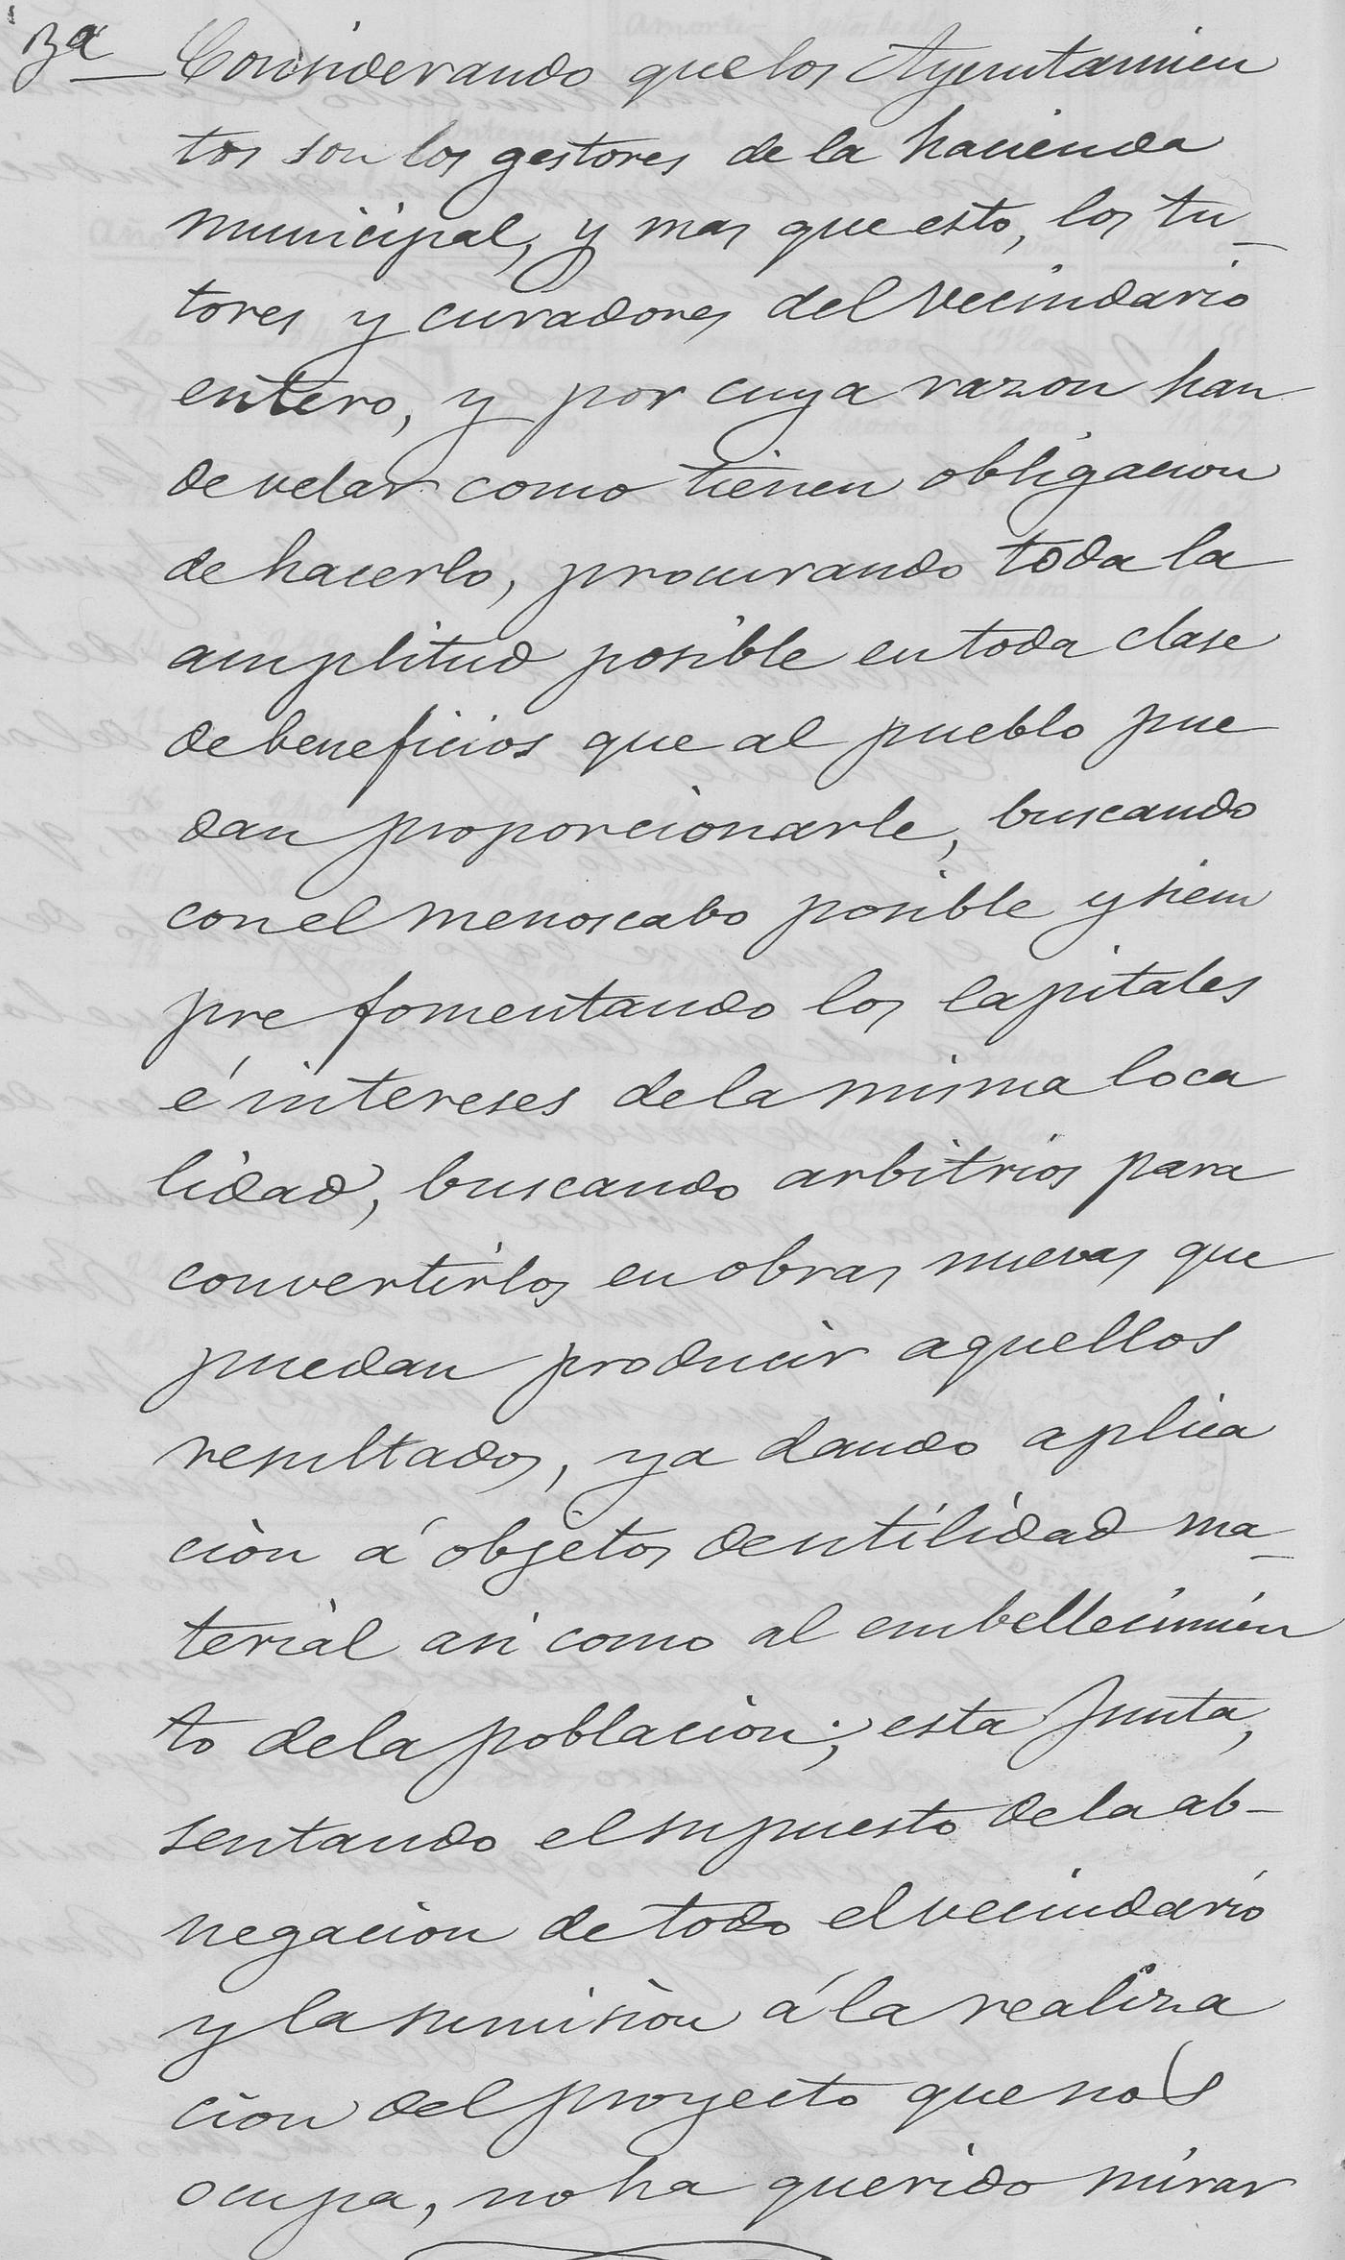 3ª Considerando que los Ayuntamien
tos son los gestores de la hacienda
municipal, y mas que esto, los tu_
tores y curadores del vecindario
entero, y por cuya razon han
de velar como tienen obligacion
de hacerlo, procurando toda la
amplitud posible en toda clase
de beneficios que al pueblo pue
dan proporcionarle, buscando
con el menoscabo posible y siem
pre fomentando los capitales
é intereses de la misma loca
lidad, buscando arbitrios para
convertirlos en obras nuevas que
puedan producir aquellos
resultados, ya dando aplica
ciòn á objetos de utilidad ma_
terial asi como al embellecimien
to de la poblacion; esta Junta,
sentando el supuesto de la ab-
negacion de todo el vecindario
y la sumisiòn á la realiza
cion del proyecto que nos
ocupa, no ha querido mirar